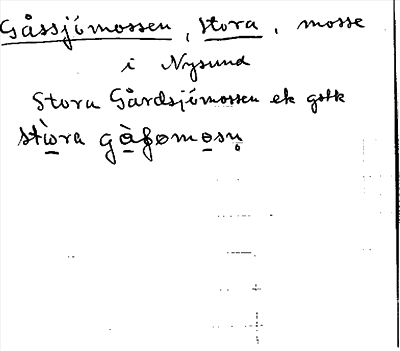 Gåssjömossen, stora, mosse
i Nysund
Stora Gårdsjömossen ek gstk
stὼra gὰʂɷmo̲sn̥